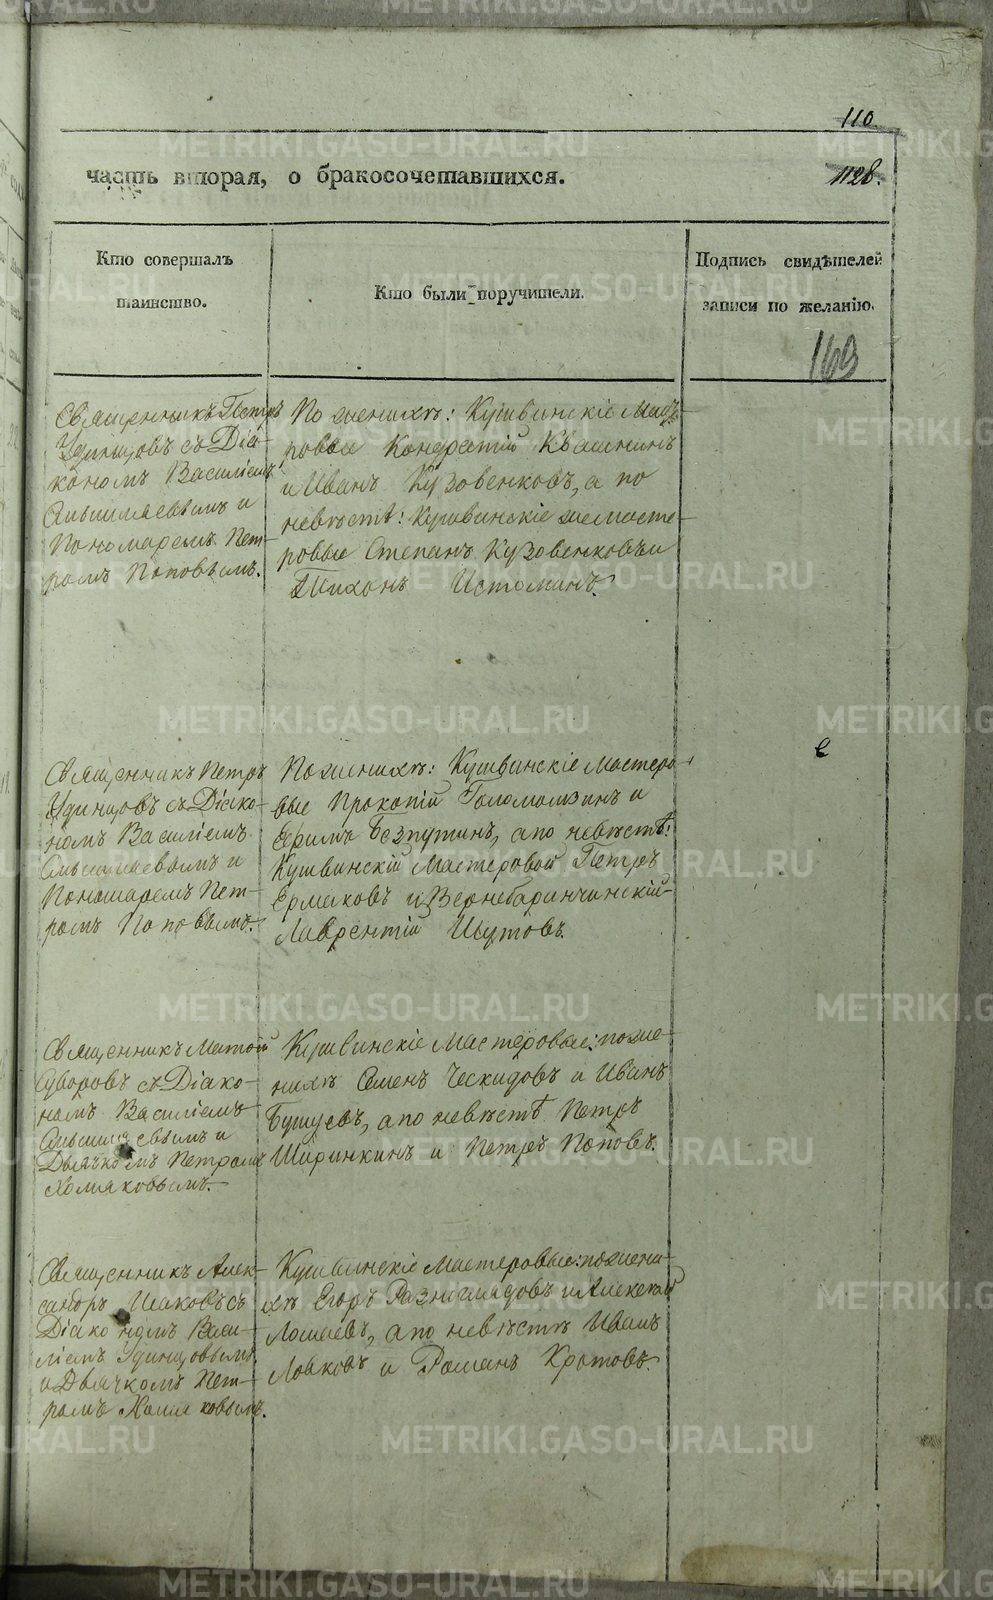 110.
часть вторая, о бракосочетавшихся.
1128.
Кто совершалъ
таинство.
Кто были поручители.
Подпись свидѣтелей
записи по желанію.
169
Священникъ Петръ
Удинцовъ съ Діа-
кономъ Василіемъ
и
Пономаремъ Пет-
ромъ Поповымъ.
По женихѣ: Кушвинскіе Масте-
ровые Кондратій Квашнинъ
и Иванъ Кузовенковъ, а по
невѣстѣ: Кушвинскіе же масте-
ровые Степанъ Кузовенковъ и
Тихонъ Истоминъ.
Священникъ Петръ
Удинцовъ съ Діако-
номъ Василіемъ
и
Пономаремъ Пет-
ромъ Поповымъ.
По женихѣ: Кушвинскіе мастеро-
вые Прокопій Голомолзинъ и
Ефимъ Безпутинъ, а по невѣстѣ:
Кушвинскій Мастеровой Петръ
Ермаковъ и Верхнебаранчинскій
Лаврентій Шутовъ.
Священникъ Матөій
Суворовъ съ Діако-
номъ Василіемъ
и
Дьячкомъ Петромъ
Хомяковымъ.
Кушвинскіе Мастеровые: по же-
нихѣ Семенъ Ческидовъ и Иванъ
Бушуевъ, а по невѣстѣ Петръ
Ширинкинъ и Петръ Поповъ.
Священникъ Алек-
сандръ Исаковъ съ
Діакономъ Васи-
ліемъ Удинцовымъ
и Дьячкомъ Пет-
ромъ Хомяковымъ.
Кушвинскіе Мастеровые: по жени-
хѣ Егоръ Разноглядовъ и Алексей
Лошаевъ, а по невѣстѣ Иванъ
Ловковъ и Романъ Кротовъ.
METRIKI.GASO-URAL.RU